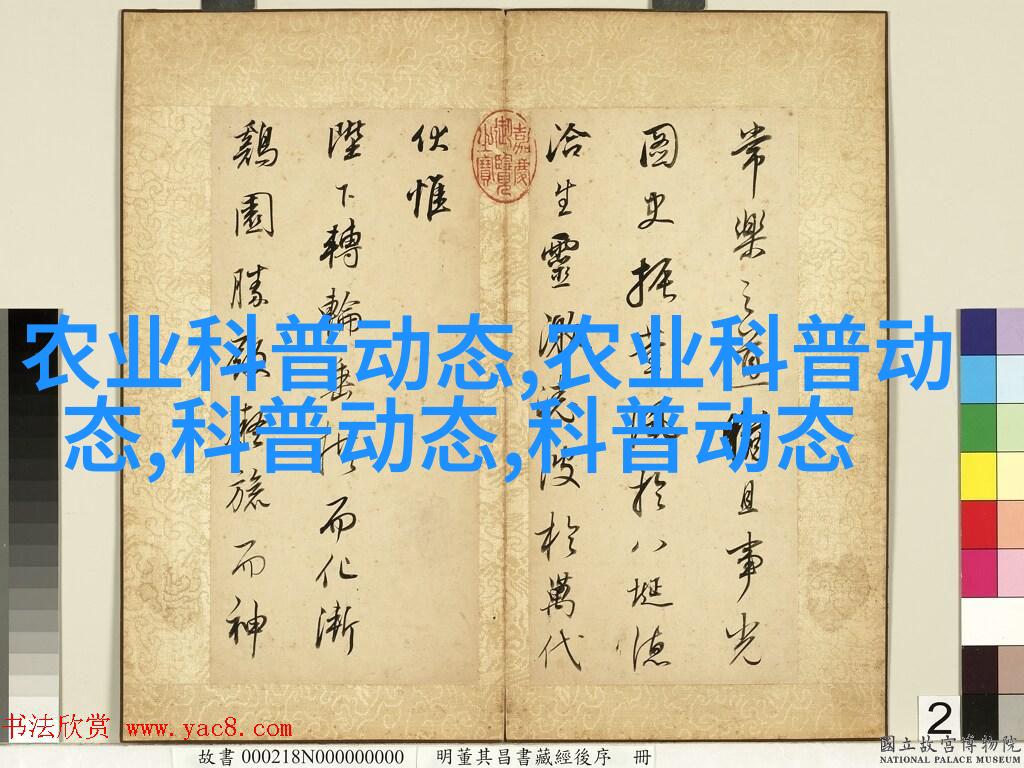 常樂之道
事光
圖史振
於八埏德
洽生靈
澤
於萬代
伏惟
陛下轉輪
而化漸
鷄園勝
而神
嘉慶御覽之寶
农业科普动态,农业科普动
态,科普动态,科普动态
2
书法欣赏 www.yac8.com
故書 000218N000000000
明董其昌書藏經後序 冊
國立故宮博物院
NATIONAL PALACE MUSEUM